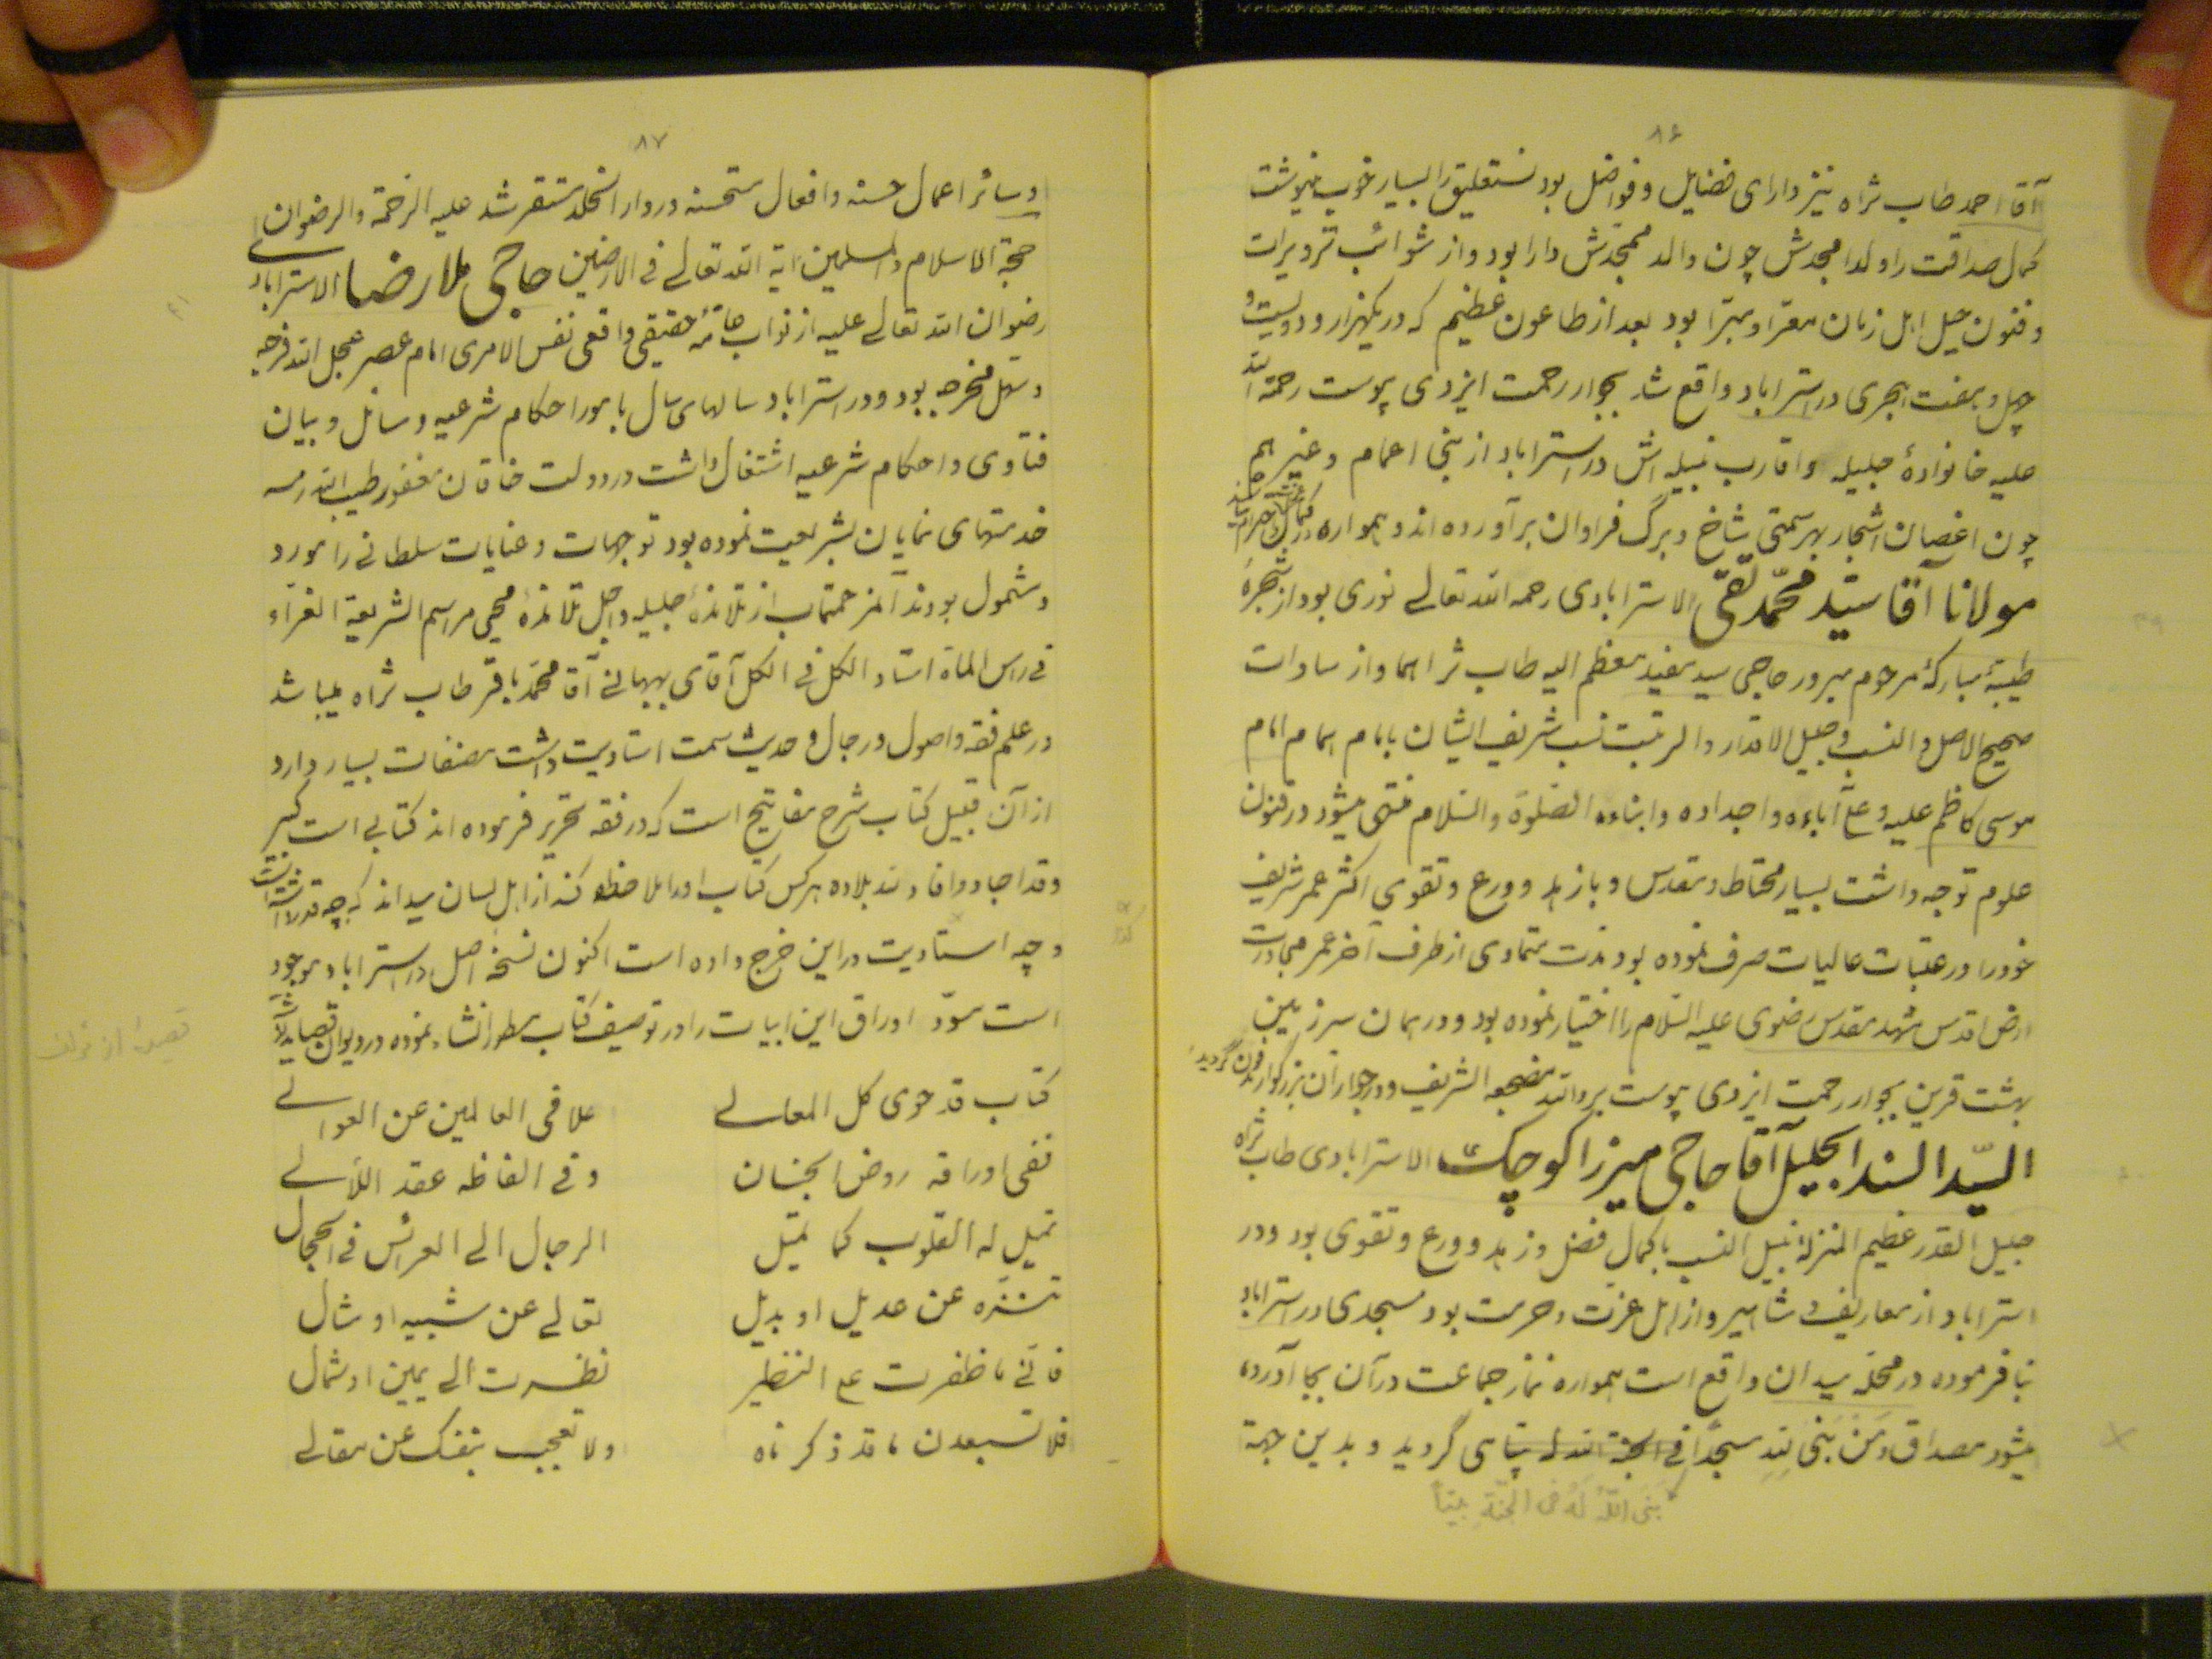 ۸۶
آقا احمد طاب ثراه نیز دارای فضایل و فواضل بود نستعلیق را بسیار خوب مینوشت
کمال صداقت را ولد امجدش چون والد ممجدش دارا بود و از شوائب تزویرات
و فنون حیل اهل زمان معرا و مبرا بود بعد از طاعون عظیم که در یکهزار و دویست و
چهل و هفت هجری در استراباد واقع شد بجوار رحمت ایزدی پیوست رحمة الله
علیه خانوادهٔ جلیله و اقارب نبیله اش در استراباد از بنی اعمام و غیر هم
چون اغصان اشجار بهر سمتی شاخ و برگ فراوان برآورده اند و همواره در کمال احترام
مولانا آقا سید محمّد تقی الاسترابادی رحمه الله تعالی نوری بود از شجرهٔ
طیبهٔ مبارکهٔ مرحوم مبرور حاجی سید مفید معظم الیه طاب ثراهما و از سادات
صحیح الاصل و النسب و جلیل الاقتدار و الرتبت نسب شریف ایشان بامام همام امام
موسی کاظم علیه و علی آباءه و اجداده و ابناءه الصلوة و السلام منتهی میشود در فنون
علوم توجه داشت بسیار محتاط و مقدس و با زهد و ورع و تقوی اکثر عمر شریف
خود را در عتبات عالیات صرف نموده بود مدت متمادی از طرف آخر عمر مجاورت
ارض اقدس مشهد مقدس رضوی علیه السلام را اختیار نموده بود و در همان سرزمین
بهشت قرین بجوار رحمت ایزدی پیوست برد الله مضجعه الشریف و در جوار آن بزرگوار مدفون گردید
السیّد السند الجلیل آقا حاجی میرزا کوچک الاسترابادی طاب ثراه
جلیل القدر عظیم المنزلة نبیل النسب با کمال فضل و زهد و ورع و تقوی بود و در
استراباد از معاریف و مشاهیر و از اهل عزت و حرمت بود مسجدی در استراباد
بنا فرموده در محلهٔ میدان واقع است همواره نماز جماعت در آن بجا آورده
میشود مصداق وَ مَنْ بَنی لله مسجدًا فی الجنة الله له بیتا می گردید و بدین جهة
بَنَی اللهُ لَهُ فی الجَنَّةِ بیتاً
۸۷
و سائر اعمال حسنه و افعال مستحسنه در دار الخلد مستقر شد علیه الرحمة و الرضوان
حجة الاسلام و المسلمین آیة الله تعالی فی الارضین حاجی ملا رضا الاسترابادی
رضوان الله تعالی علیه از نواب عامّهٔ حقیقی واقعی نفس الامری امام عصر عجل الله فرجه
و سهل مخرجه بود و در استراباد سالهای سال بامور احکام شرعیه و مسائل و بیان
فتاوی و احکام شرعیه اشتغال داشت در دولت خاقان مغفور طیب الله رمسه
خدمتهای نمایان بشریعت نموده بود توجهات و عنایات سلطانی را مورد
و مشمول بودند آنمرحمتمآب از تلامذهٔ جلیله و اجل تلامذهٔ محیی مراسم الشریعة الغراء
فی راس الماة استاد الکل فی الکل آقای بهبهانی آقا محمّد باقر طاب ثراه میباشد
در علم فقه و اصول و رجال و حدیث سمت استادیت داشت مصنفات بسیار دارد
از آن قبیل کتاب شرح مفاتیح است که در فقه تحریر فرموده اند کتابی است کبیر
و قد اجاد و افاد هر کس کتاب او را ملاحظه کند از اهل لسان میداند که چه قدرها
و چه استادیت در این خرج داده است اکنون نسخهٔ اصل در استراباد موجود
است مسوّد اوراق این ابیات را در توصیف کتاب مسطور انشاء نموده در دیوان قصاید
قصیده از مؤلف
کتاب قد حوی کل المعالی علا فی العالمین عن العوالی
ففی اوراقه روض الجنان و فی الفاظه عقد اللآلی
تمیل له القلوب کما تمیل الرجال الی العرائس فی الحجال
تنزّه عن عدیل او بدیل تعالی عن شبیه او مثال
فانّی ما ظفرت علی النظیر نظرت الی یمین او شمال
فلا تستبعدن ما قد ذکرناه ولا تعجب بتفک عن مقالی